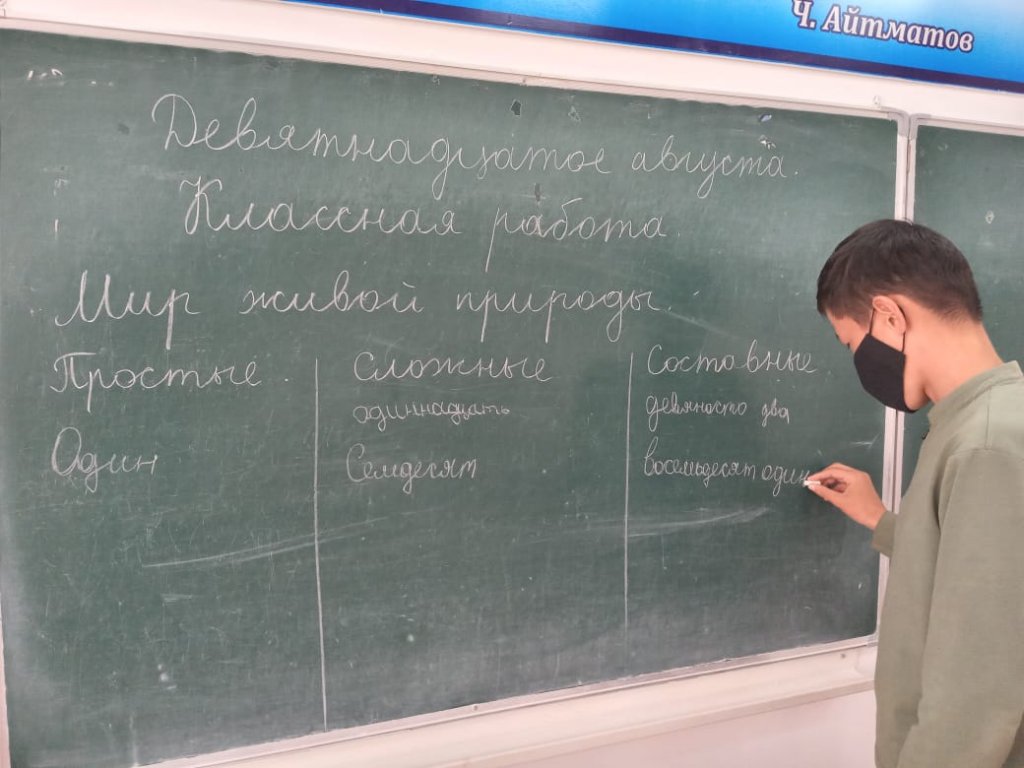 Ч. Айтматов
Девятнадцатое августа.
Классная работа.
Мир живой природы.
Простые
Сложные
Составные
одиннадцать
девяносто два
Один
Семдесят
восемьдесят один